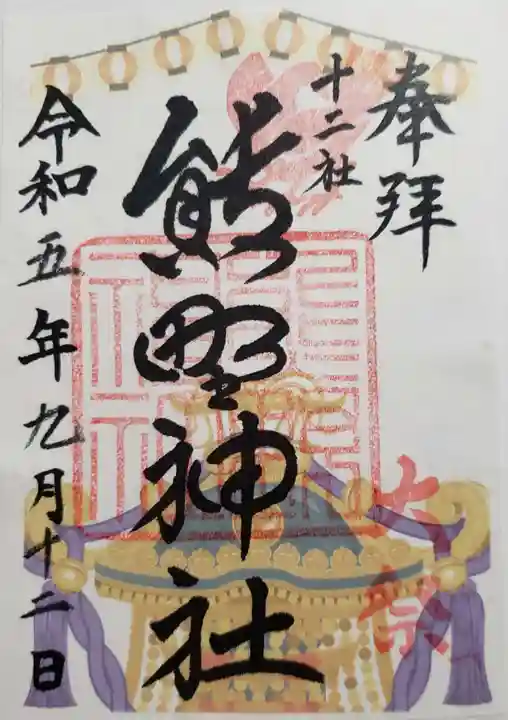 奉拝
十二社
熊野神社
大祭
令和五年九月十二日